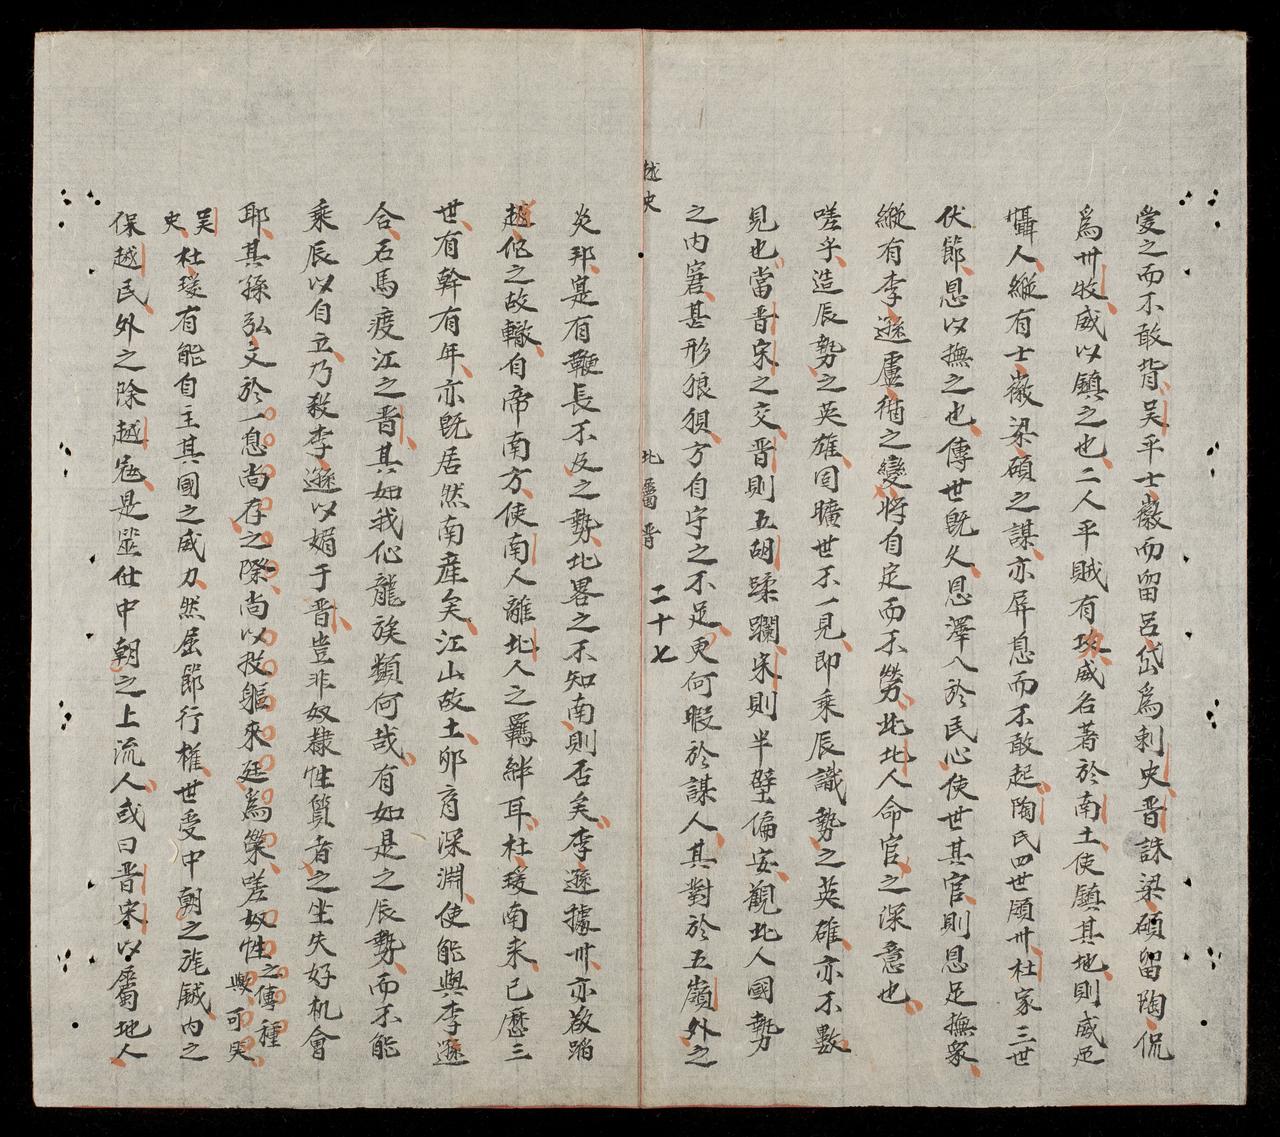 愛之而不敢背吳平士徽而留呂岱爲刺史晋誅梁碩留陶侃
爲卅牧威以鎮之也二人平賊有功威名著於南土使鎮其地則威足
懾人縱有士徽梁碩之謀亦屏息而不敢起陶氏四世領卅杜家三世
伏節恩以撫之也傳世既久恩澤入於民心使世其官則恩足撫衆
縱有李遜盧循之變将自定而不勞北北人命官之深意也
嗟乎造辰勢之英雄固曠世不一見即乘辰識勢之英雄亦不數
見也當晋宋之交晋則五胡蹂躪宋則半壁偏安觀北人國勢
之内窘甚形狼狽方自守之不足更何暇於謀人其對於五嶺外之
越史
北屬晋
二十七
炎邦寔有鞭長不及之勢北畧之不知南則否矣李遜據卅亦欲蹈
越佗之故轍自帝南方使南人離北人之羈絆耳杜瑗南来已歷三
世有幹有年亦既居然南產矣江山故土卵育深淵使能與李遜
合石馬渡江之晋其如我化龍族類何哉有如是之辰勢而不能
乘辰以自立乃殺李遜以媚于晋豈非奴隸性質者之坐失好机會
耶其孫弘文於一息尚存之際尚以投軀來廷為榮嗟奴性之傳種
歟可哭
吴史
杜瑗有能自主其國之威力然屈節行權世受中朝之旄鉞内之
保越民外之除越寇是盜仕中朝之上流人或曰晋宋以屬地人